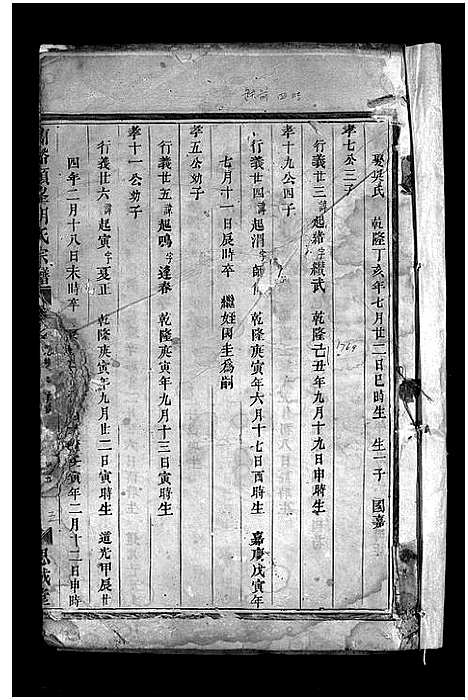 娶吳氏 乾隆丁亥年七月廿二日巳時生 生一子 國嘉
孝七公三子
行義廿三諱起緒字纘武 乾隆己丑年九月十九日申時生
1769
孝十九公四子
行義廿四諱起渭字師 乾隆庚寅年六月十七日酉時生 嘉慶戊寅年
七月十一日辰時卒 繼姪國圭為嗣
孝五公幼子
行義廿五諱起鳴字逢春 乾隆庚寅年九月十三日寅時生
孝十一公幼子
行義廿六諱起寅字夏正 乾隆庚寅年九月廿二日寅時生 道光甲辰廿
四年二月十八日未時卒 寅年二月十二日申時
氏宗譜
三
思誠堂